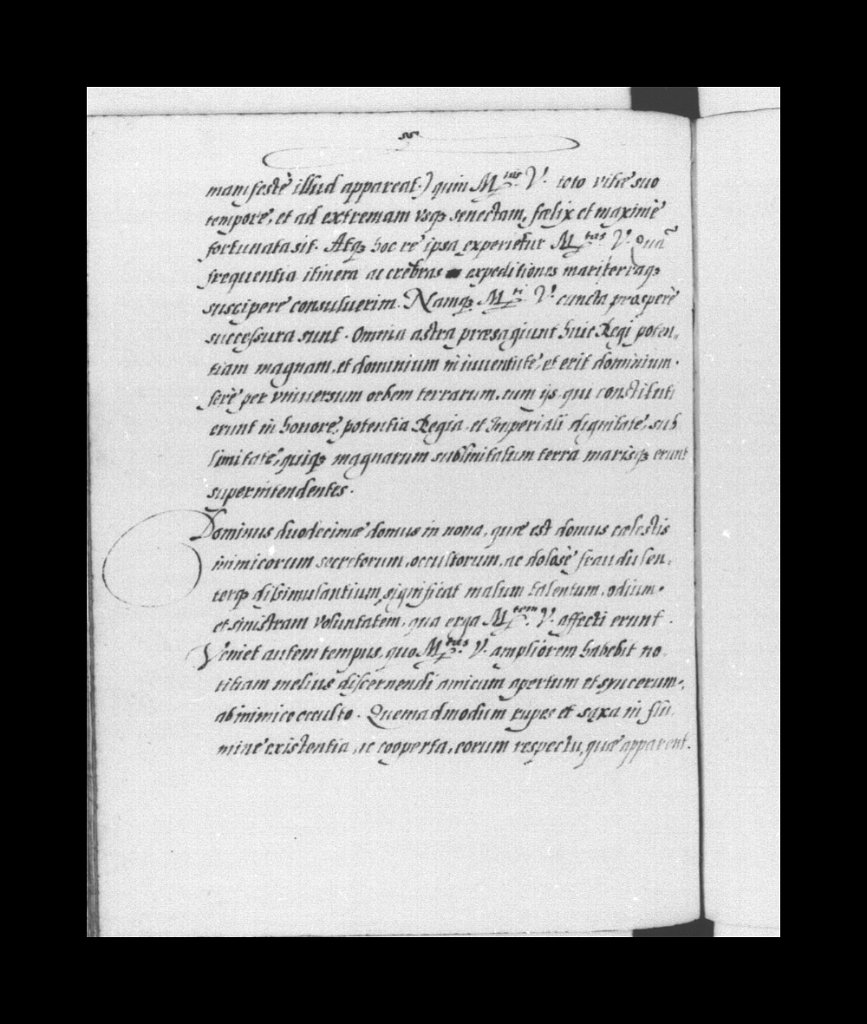 manifestè illud appareat.) quin M.tas V. toto vitæ suo
tempore, et ad extremam vsq3 senectam, fœlix et maximè
fortunata sit. Atq3 hoc re ipsa experietur M.tas V. Quã
frequentia itinera ac crebras expeditiones mari terraq3
suscipere consuluerim. Namq3 M.ti V. cuncta prosperè
successura sunt. Omnia astra præsagiunt huic Regi poten,
tiam magnam, et dominium in iuuentute, et erit dominium
ferè per vniuersum orbem terrarum, cum ijs qui constituti
erunt in honore, potentia Regia, et Imperiali dignitate, sub
limitate, quiq3 magnarum sublimitatum terra mariq3 erunt
superintendentes.
Dominus duodecimæ domus in nona, quæ est domus cælestis
inimicorum secretorum, occultorum, ac dolosè fraudulen,
terq3 dissimulantium, significat malum talentum, odium,
et sinistram voluntatem, qua erga M.tem V. affecti erunt.
Veniet autem tempus, quo M.tas V. ampliorem habebit no,
titiam melius discernendi amicum apertum et syncerum,
ab inimico occulto. Quemadmodum rupes et saxa in flu,
mine existentia, ac cooperta, eorum respectu, quæ apparent.